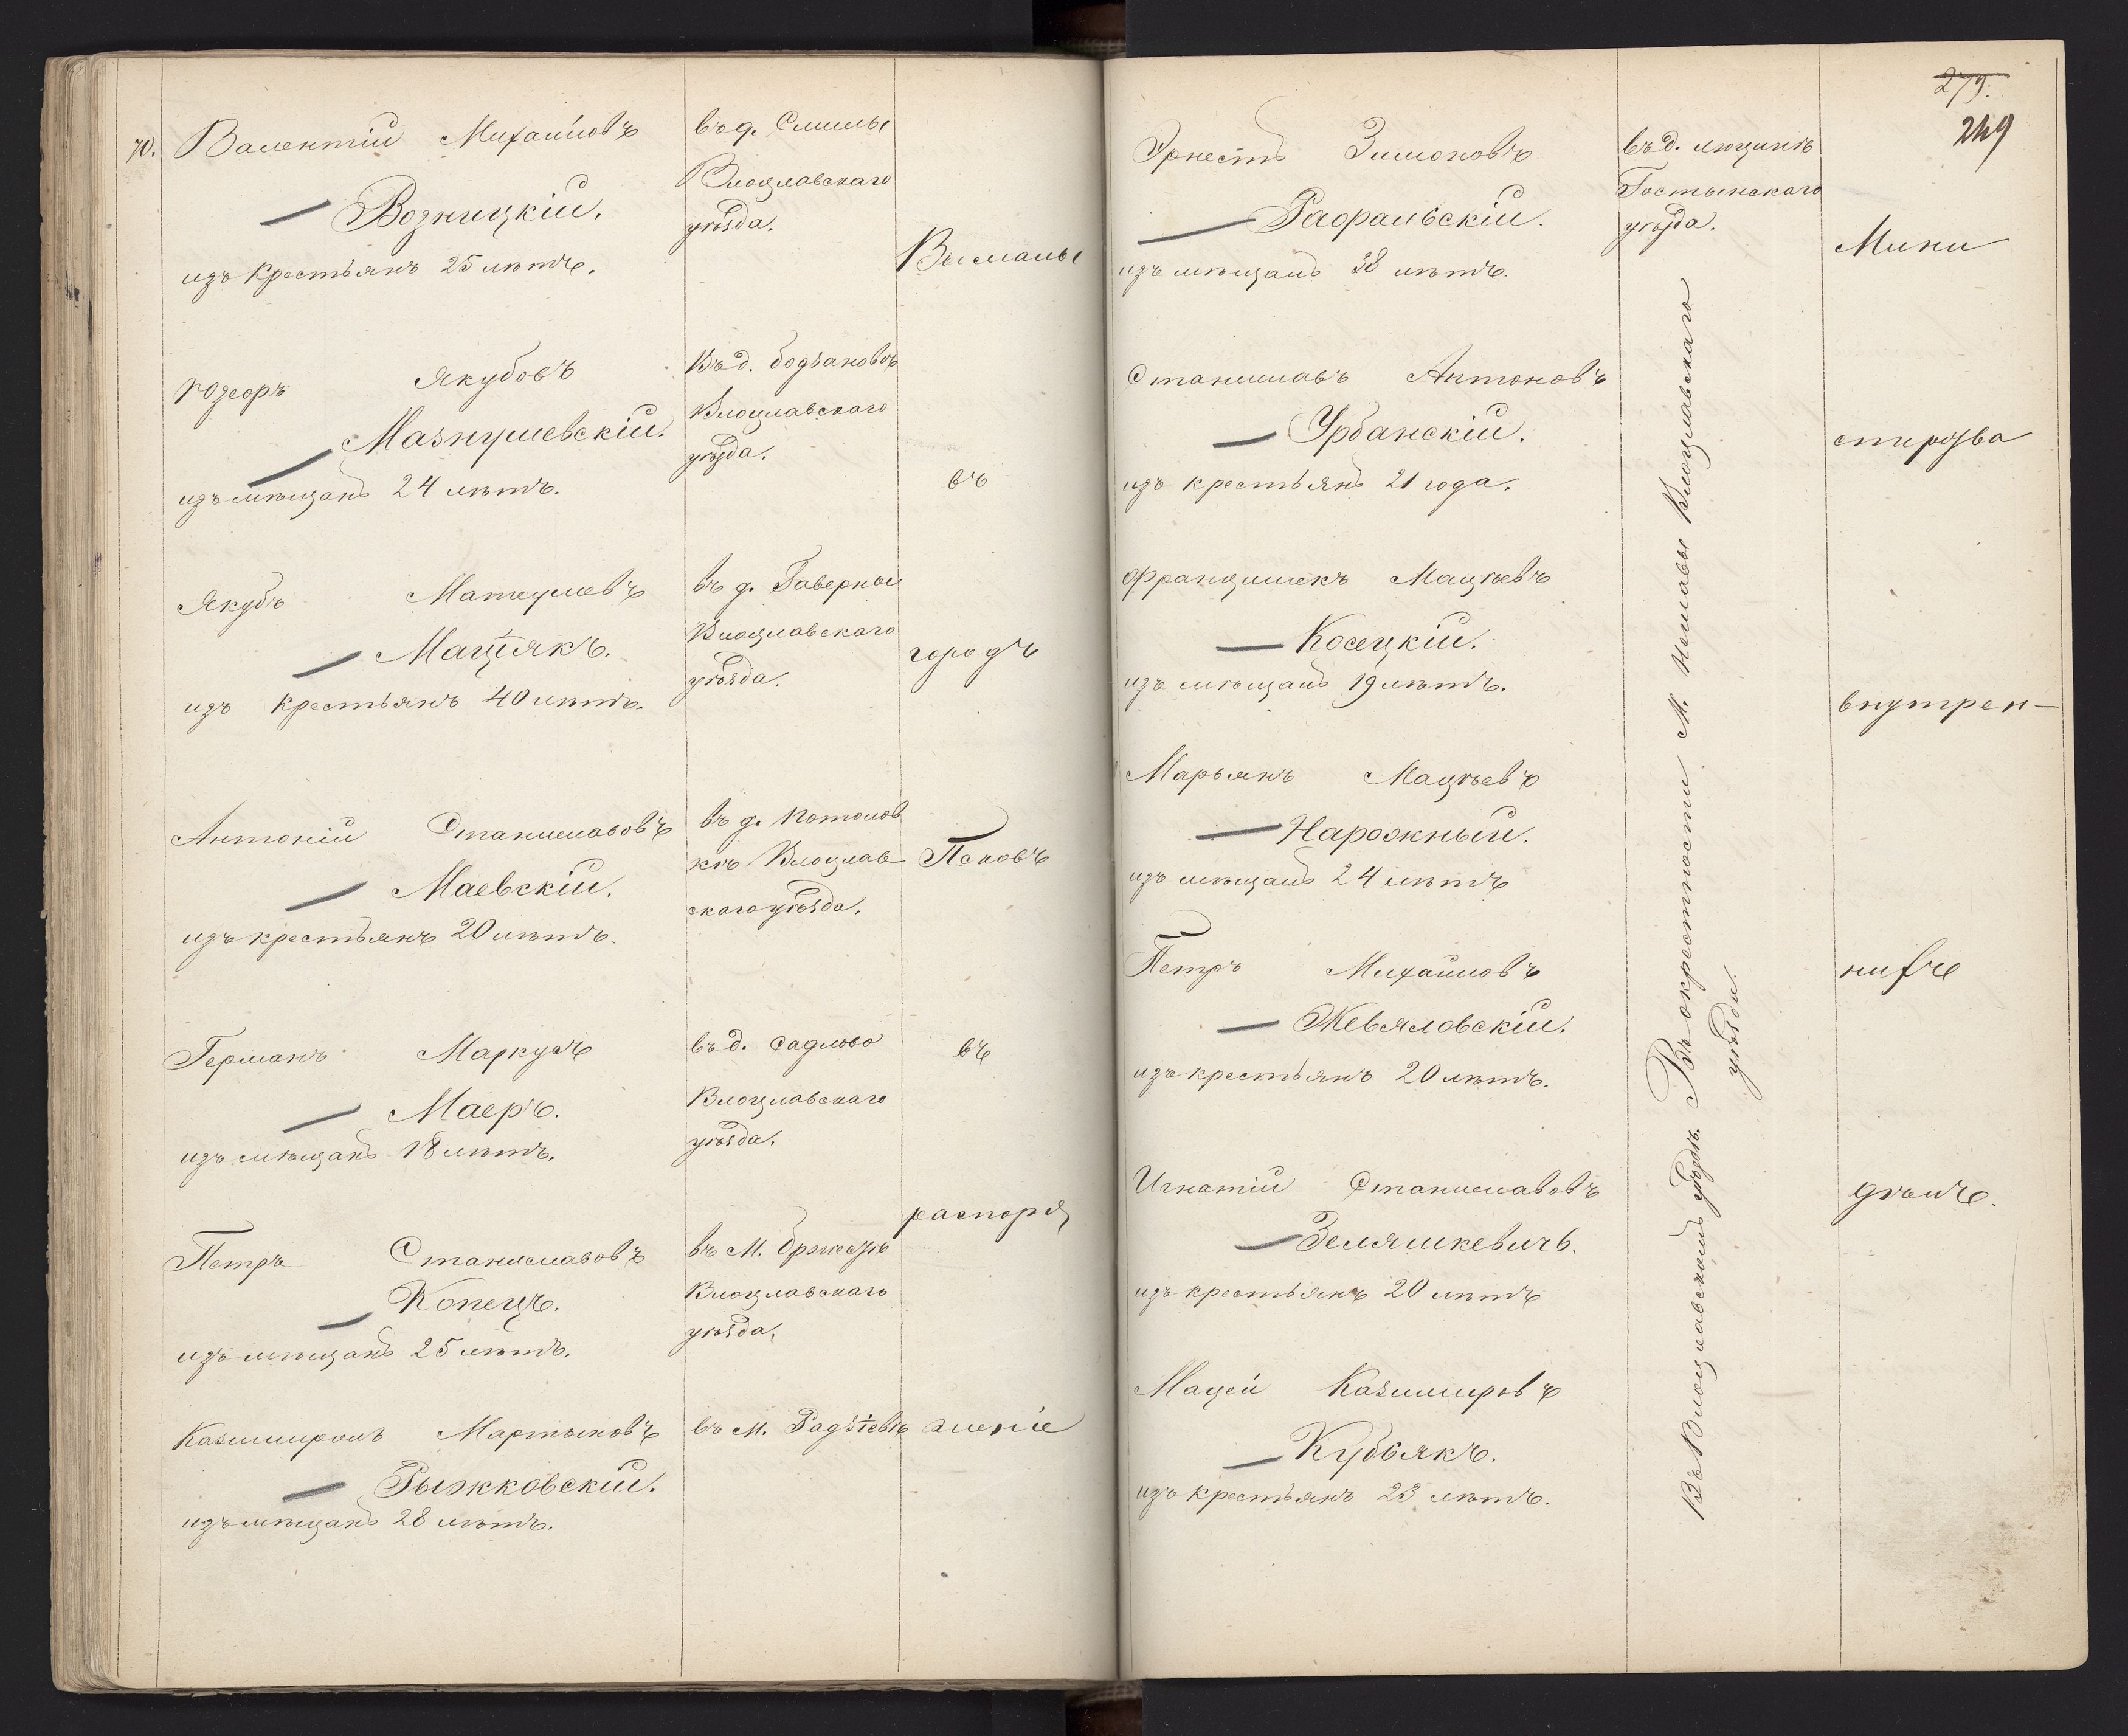 70. Валентій Михайловъ
Возницкій.
изъ крестьянъ 25 лѣтъ.
въ д.
Влоцлавскаго
уѣзда.
Высланы
Якубовъ
изъ мѣщанъ 24 лѣтъ.
Въ д.
Влоцлавскаго
уѣзда.
въ
Якубъ
Мацѣякъ.
изъ крестьянъ 40 лѣтъ.
въ д.
Влоцлавскаго
уѣзда.
городъ
Антоній Станиславовъ
Маевскій.
изъ крестьянъ 20 лѣтъ.
въ д. Потолов
кѣ Влоцлав
скаго уѣзда.
Псковъ
Германъ Маркусъ
Маеръ.
изъ мѣщанъ 18 лѣтъ.
въ д. Садлово
Влоцлавскаго
уѣзда.
въ
Петръ Станиславовъ
Копецъ.
изъ мѣщанъ 25 лѣтъ.
въ М.
Влоцлавскаго
уѣзда.
распоря
Мартыновъ
Рыжковскій.
изъ мѣщанъ 28 лѣтъ.
въ М. Радзіевѣ
женіе
279.
249
Эрнестъ Зимоновъ
изъ мѣщанъ 38 лѣтъ.
въ д.
Гостынскаго
уѣзда.
Мини
Станиславъ Антоновъ
Урбанскій.
изъ крестьянъ 21 года.
стерства
Францишекъ Мацѣевъ
Косецкій.
изъ мѣщанъ 19 лѣтъ.
внутрен-
Марьянъ Мацѣевъ
Нарожный.
изъ мѣщанъ 24 лѣтъ
Петръ Михайловъ
Жевяловскій.
изъ крестьянъ 20 лѣтъ.
нихъ
Игнатій Станиславовъ
Зеляшкевичъ.
изъ крестьянъ 20 лѣтъ
дѣлъ.
Мацей Казимировъ
Кубьякъ.
изъ крестьянъ 23 лѣтъ.
Въ Влоцлавскомъ уѣздѣ. Въ окрестности М. Нешавы Влоцлавскаго
уѣзда.